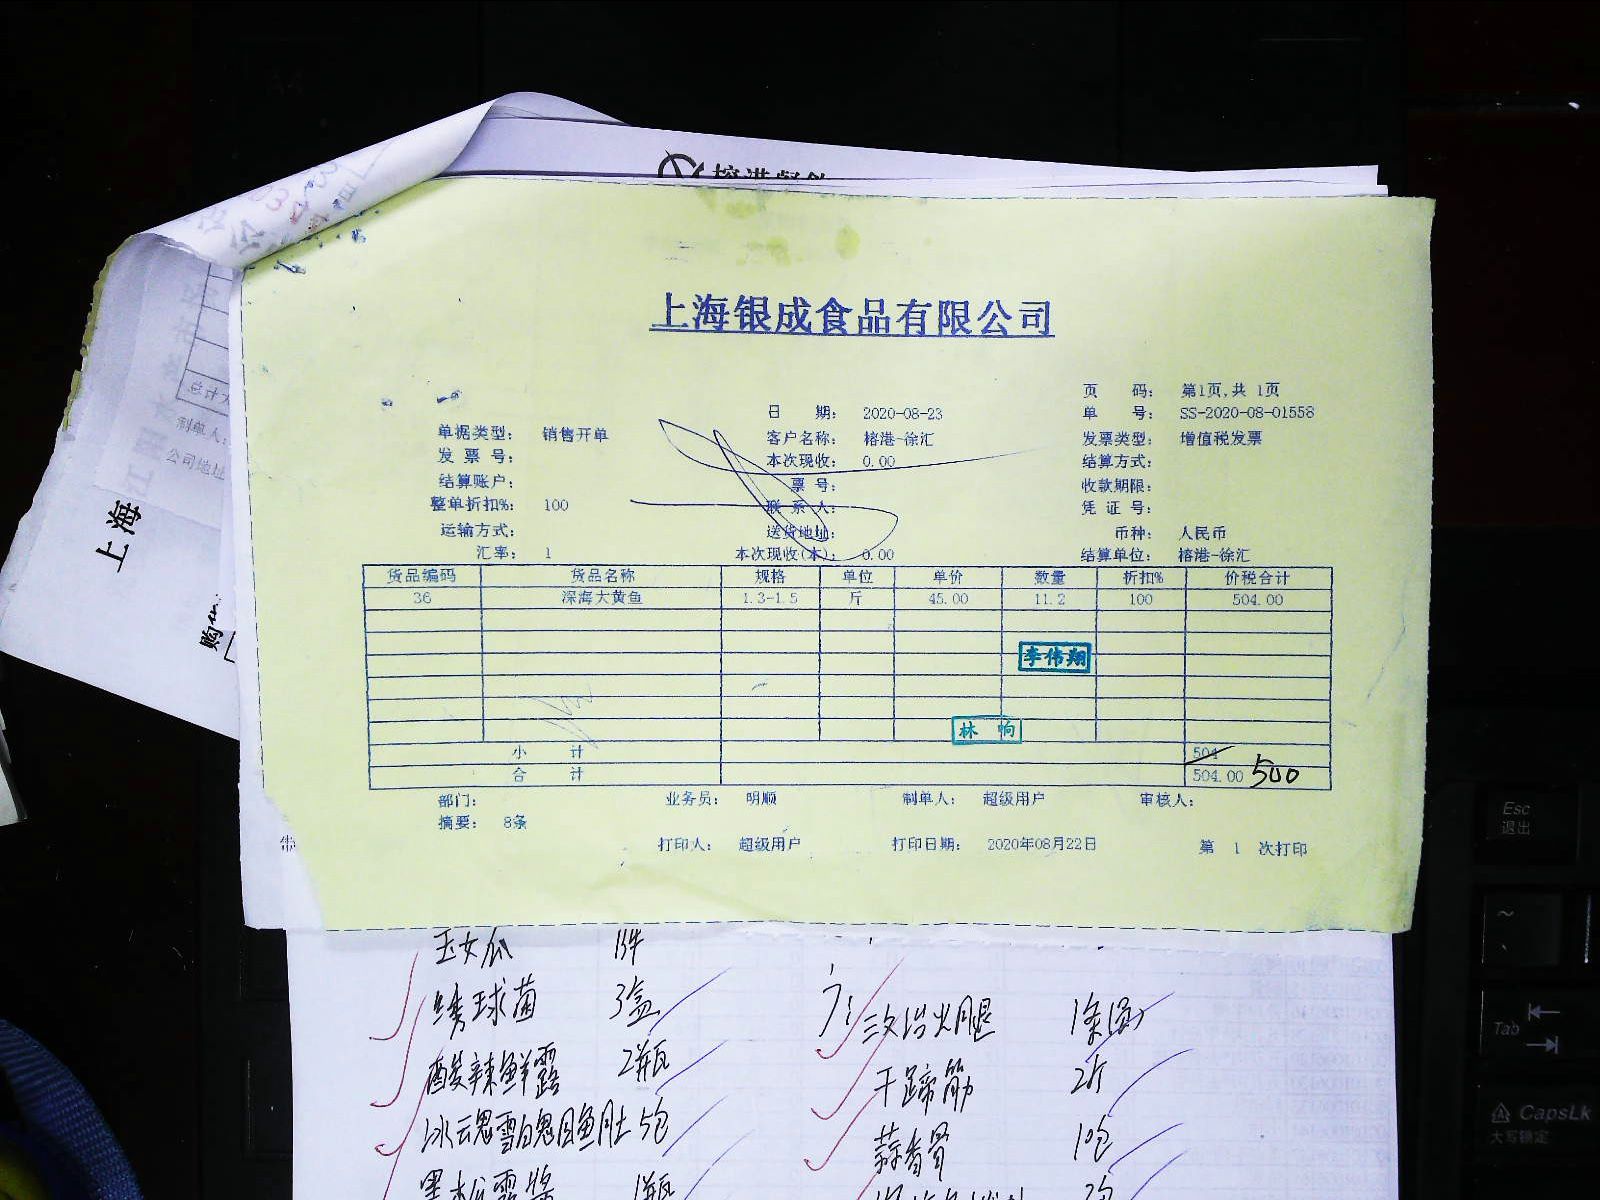 上海银成食品有限公司
页 码： 第1页,共 1页
日 期： 2020-08-23 单 号： SS-2020-08-01558
单据类型： 销售开单 客户名称： 榕港-徐汇 发票类型： 增值税发票
发 票 号： 本次现收： 0.00 结算方式：
结算账户： 票 号： 收款期限：
整单折扣%： 100 联 系 人： 凭 证 号：
运输方式： 送货地址： 币种： 人民币
汇率： 1 本次现收(本)： 0.00 结算单位： 榕港-徐汇
货品编码 货品名称 规格 单位 单价 数量 折扣% 价税合计
36 深海大黄鱼 1.3-1.5 斤 45.00 11.2 100 504.00
李伟翔
林 响
小 计 504
合 计 504.00 500
部门： 业务员： 明顺 制单人： 超级用户 审核人：
摘要： 8条
打印人： 超级用户 打印日期： 2020年08月22日 第 1 次打印
总计
制单人：
公司地址
上海
购
玉女瓜 1件
绣球菌 3盒
酸辣鲜露 2瓶
5包
1瓶
三文治火腿 1条
干蹄筋 2斤
蒜香骨 1包
Esc
退出
~
Tab
CapsLk
大写锁定